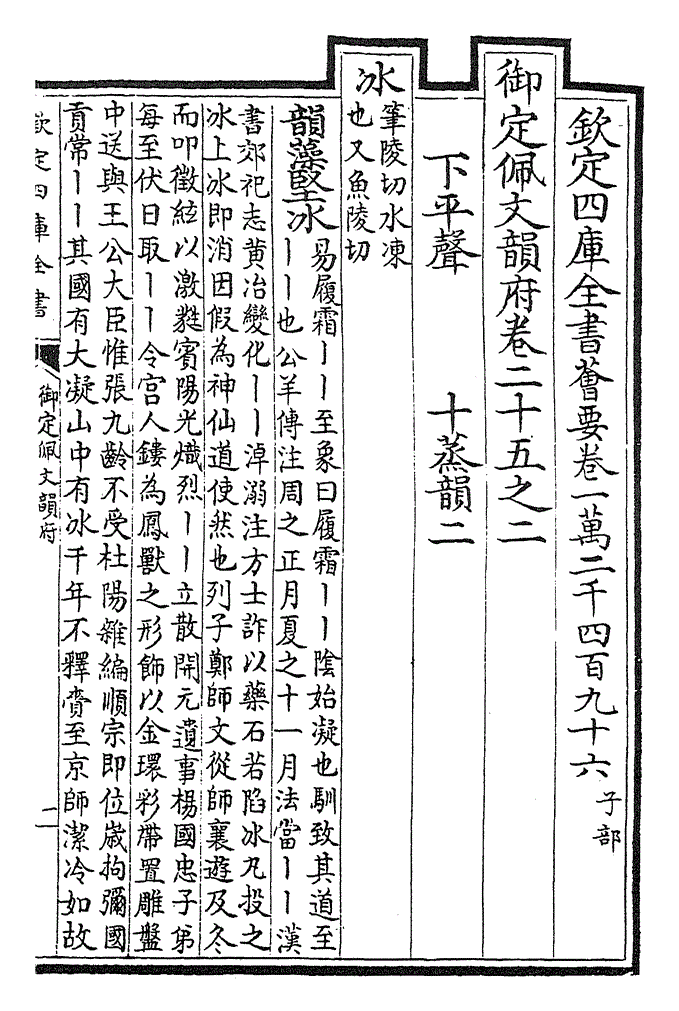 欽定四庫全書薈要卷一萬二千四百九十六 子部
御定佩文韻府卷二十五之二
下平聲 十蒸韻二
冰
筆陵切水凍
也又魚陵切
韻藻堅冰
易履霜丨丨至象曰履霜丨丨陰始凝也馴致其道至
丨丨也公羊傳注周之正月夏之十一月法當丨丨漢
書郊祀志黄冶變化丨丨淖溺注方士詐以藥石若陷冰丸投之
冰上冰即消因假為神仙道使然也列子鄭師文從師襄遊及冬
而叩徵絃以激蕤賓陽光熾烈丨丨立散開元遺事楊國忠子弟
每至伏日取丨丨令宫人鏤為鳳獸之形飾以金環彩帶置雕盤
中送與王公大臣惟張九齡不受杜陽雜編順宗即位歲拘彌國
貢常丨丨其國有大凝山中有冰千年不釋賫至京師潔冷如故
欽定四庫全書
御定佩文韻府